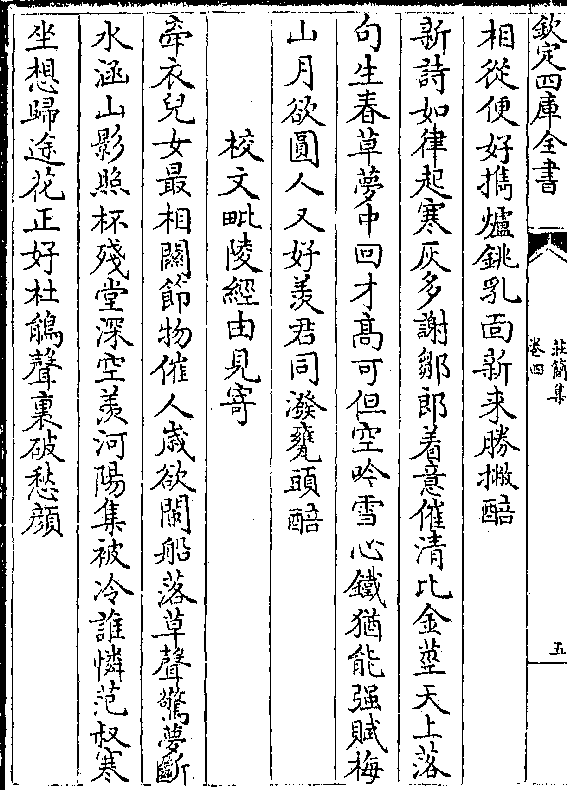 欽定四庫全書
莊簡集
卷四
五
相從便好攜爐銚乳面新来勝撇醅
新詩如律起寒灰多謝鄒郎着意催清比金莖天上落
句生春草夢中回才高可但空吟雪心鐵猶能强賦梅
山月欲圓人又好羡君同潑甕頭醅
校文毗陵經由見寄
牽衣兒女最相關節物催人歳欲闌船落草聲驚夢斷
水涵山影照杯殘堂深空羡河陽集被冷誰憐范叔寒
坐想歸途花正好杜鵑聲裏破愁顔